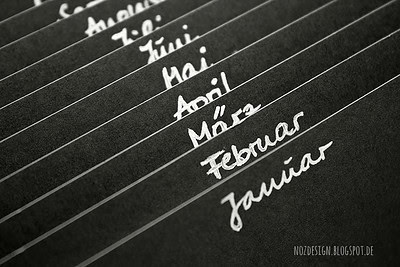 August
Juni
Mai
April
März
Februar
Januar
NOZDESIGN.BLOGSPOT.DE